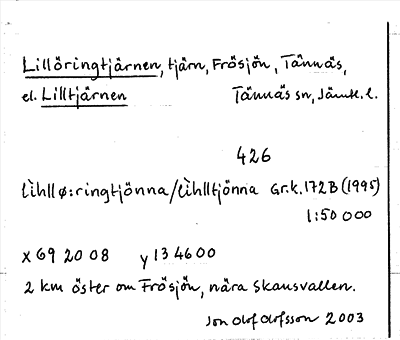 Lillöringtjärnen, tjärn, Frösjön, Tännäs,
el. Lilltjärnen Tännäs sn, Jämtl. l.
426
lìhllø:ringtjönna/lìhlltjönna Gr.k. 172B (1995)
1:50 000
x 69 20 08 y 13 46 00
2 km öster om Frösjön, nära Skansvallen.
Jon Olof Olofsson 2003